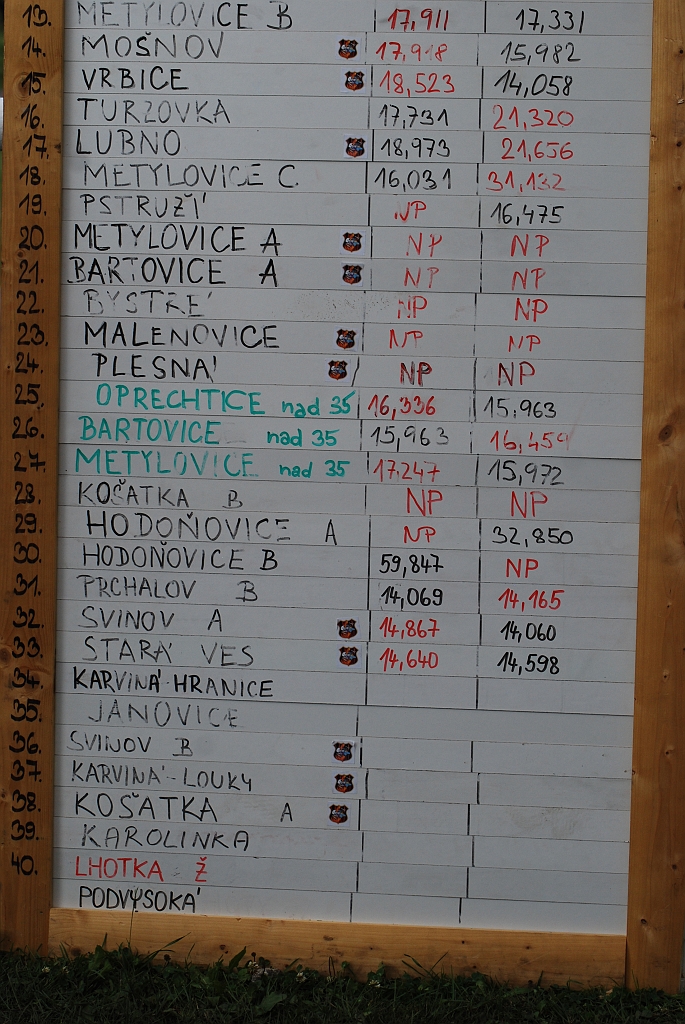 13. METYLOVICE B 17,911 17,331
14. MOŠNOV 17,918 15,982
15. VRBICE 18,523 14,058
16. TURZOVKA 17,731 21,320
17. LUBNO 18,973 21,656
18. METYLOVICE C 16,031 31,132
19. PSTRUŽÍ NP 16,475
20. METYLOVICE A NP NP
21. BARTOVICE A NP NP
22. BYSTRÉ NP NP
23. MALENOVICE NP NP
24. PLESNÁ NP NP
25. OPRECHTICE nad 35 16,336 15,963
26. BARTOVICE nad 35 15,963 16,459
27. METYLOVICE nad 35 17,247 15,972
28. KOŠATKA B NP NP
29. HODOŇOVICE A NP 32,850
30. HODOŇOVICE B 59,847 NP
31. PRCHALOV B 14,069 14,165
32. SVINOV A 14,867 14,060
33. STARÁ VES 14,640 14,598
34. KARVINÁ-HRANICE
35. JANOVICE
36. SVINOV B
37. KARVINÁ-LOUKY
38. KOŠATKA A
39. KAROLINKA
40. LHOTKA Ž
PODVYSOKÁ